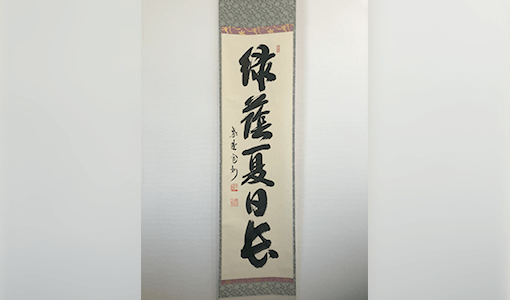 緑蔭夏日長